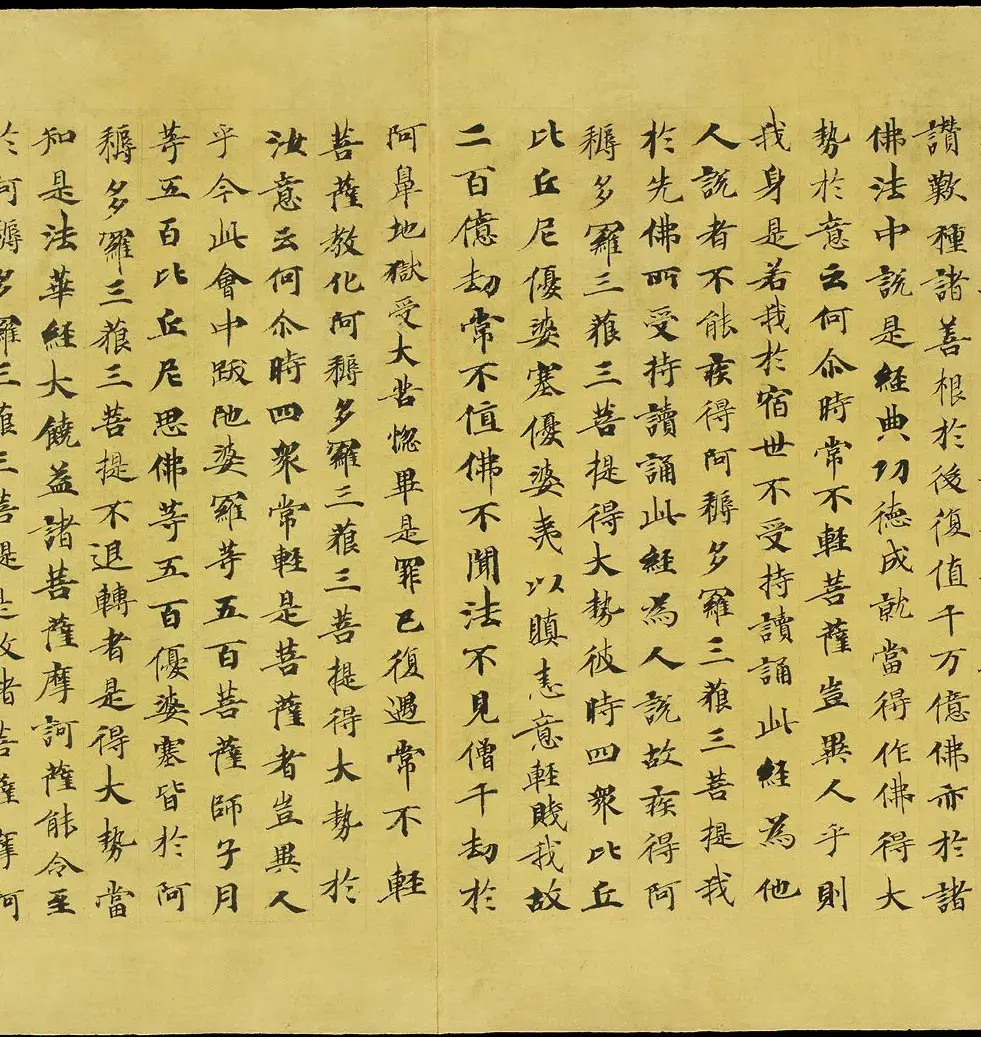 讚歎種諸善根於後復值千万億佛亦於諸
佛法中說是經典功德成就當得作佛得大
勢於意云何尒時常不輕菩薩豈異人乎則
我身是若我於宿世不受持讀誦此經為他
人說者不能疾得阿耨多羅三藐三菩提我
於先佛所受持讀誦此經為人說故疾得阿
耨多羅三藐三菩提得大勢彼時四眾比丘
比丘尼優婆塞優婆夷以瞋恚意輕賤我故
二百億劫常不值佛不聞法不見僧千劫於
阿鼻地獄受大苦惱畢是罪已復遇常不輕
菩薩教化阿耨多羅三藐三菩提得大勢於
汝意云何尒時四眾常輕是菩薩者豈異人
乎今此會中跋陁婆羅等五百菩薩師子月
等五百比丘尼思佛等五百優婆塞皆於阿
耨多羅三藐三菩提不退轉者是得大勢當
知是法華經大饒益諸菩薩摩訶薩能令至
於阿耨多羅三藐三菩提是故諸菩薩摩訶